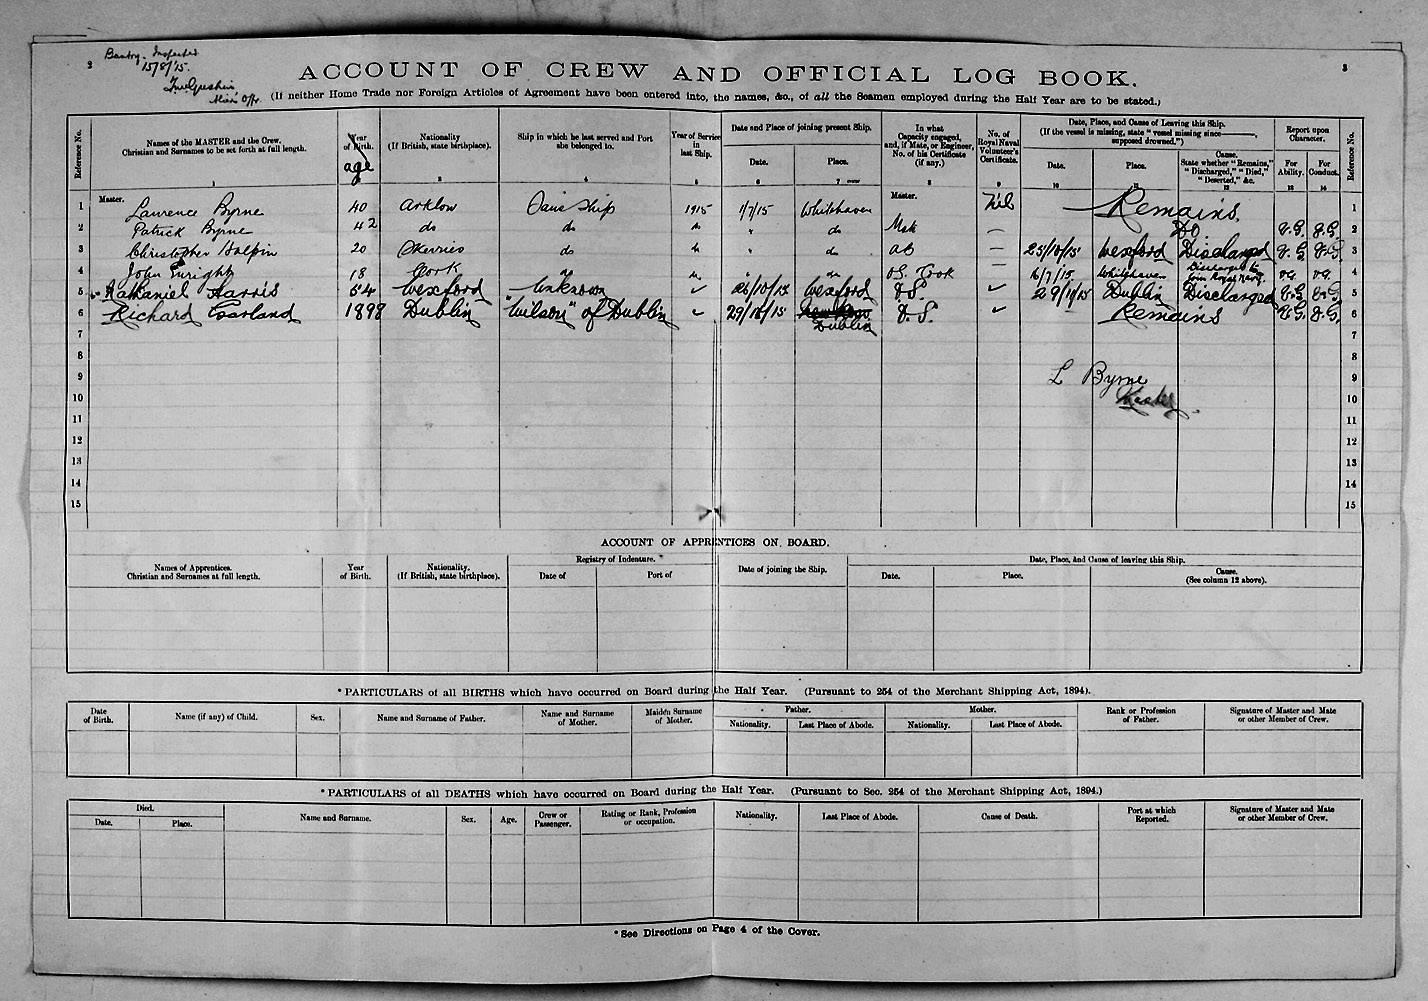 2
Bantry. Inspected
15/8/15.
Offr.
3
ACCOUNT OF CREW AND OFFICIAL LOG BOOK.
(If neither Home Trade nor Foreign Articles of Agreement have been entered into, the names, &c., of all the Seamen employed during the Half Year are to be stated.)
Reference No. Names of the MASTER and the Crew. Christian and Surnames to be set forth at full length. 1 Year of Birth. age 2 Nationality (If British, state birthplace). 3 Ship in which he last served and Port she belonged to. 4 Year of Service in last Ship. 5 Date and Place of joining present Ship. Date. 6 Place. 7 In what Capacity engaged, and, if Mate, or Engineer, No. of his Certificate (if any.) 8 No. of Royal Naval Volunteer's Certificate. 9 Date, Place, and Cause of Leaving this Ship. (If the vessel is missing, state "vessel missing since ———, supposed drowned.") Date. 10 Place. 11 Cause. State whether "Remains," "Discharged," "Died," "Deserted," &c. 12 Report upon Character. For Ability. 13 For Conduct. 14 Reference No.
1 Master. Laurence Byrne 40 Arklow Same Ship 1915 1/7/15 Whitehaven Master. Nil Remains. 1
2 Patrick Byrne 42 do do do " do Mate — Do V.G. V.G. 2
3 Christopher Halpin 20 Skerries do do " do AB — 25/10/15 Wexford Discharged V.G V.G 3
4 John Enright 18 Cork do do " do OS. Cook 16/7/15 Whitehaven Discharged to join Royal Navy. VG. VG. 4
5 Nathaniel Harris 54 Wexford Unknown 26/10/15 Wexford 29/11/15 Dublin Discharged V.G V.G 5
6 Richard Garland 1898 Dublin "Wilson" of Dublin 29/11/15 Dublin Remains V.G. V.G. 6
7 7
8 8
9 L Byrne 9
10 Master 10
11 11
12 12
13 13
14 14
15 15
ACCOUNT OF APPRENTICES ON BOARD.
Names of Apprentices. Christian and Surnames at full length. Year of Birth. Nationality. (If British, state birthplace). Registry of Indenture. Date of Port of Date of joining the Ship. Date, Place, and Cause of leaving this Ship. Date. Place. Cause. (See column 12 above).
*PARTICULARS of all BIRTHS which have occurred on Board during the Half Year. (Pursuant to 254 of the Merchant Shipping Act, 1894).
Date of Birth. Name (if any) of Child. Sex. Name and Surname of Father. Name and Surname of Mother. Maiden Surname of Mother. Father. Nationality. Last Place of Abode. Mother. Nationality. Last Place of Abode. Rank or Profession of Father. Signature of Master and Mate or other Member of Crew.
*PARTICULARS of all DEATHS which have occurred on Board during the Half Year. (Pursuant to Sec. 254 of the Merchant Shipping Act, 1894.)
Died. Date. Place. Name and Surname. Sex. Age. Crew or Passenger. Rating or Rank, Profession or occupation. Nationality. Last Place of Abode. Cause of Death. Port at which Reported. Signature of Master and Mate or other Member of Crew.
*See Directions on Page 4 of the Cover.